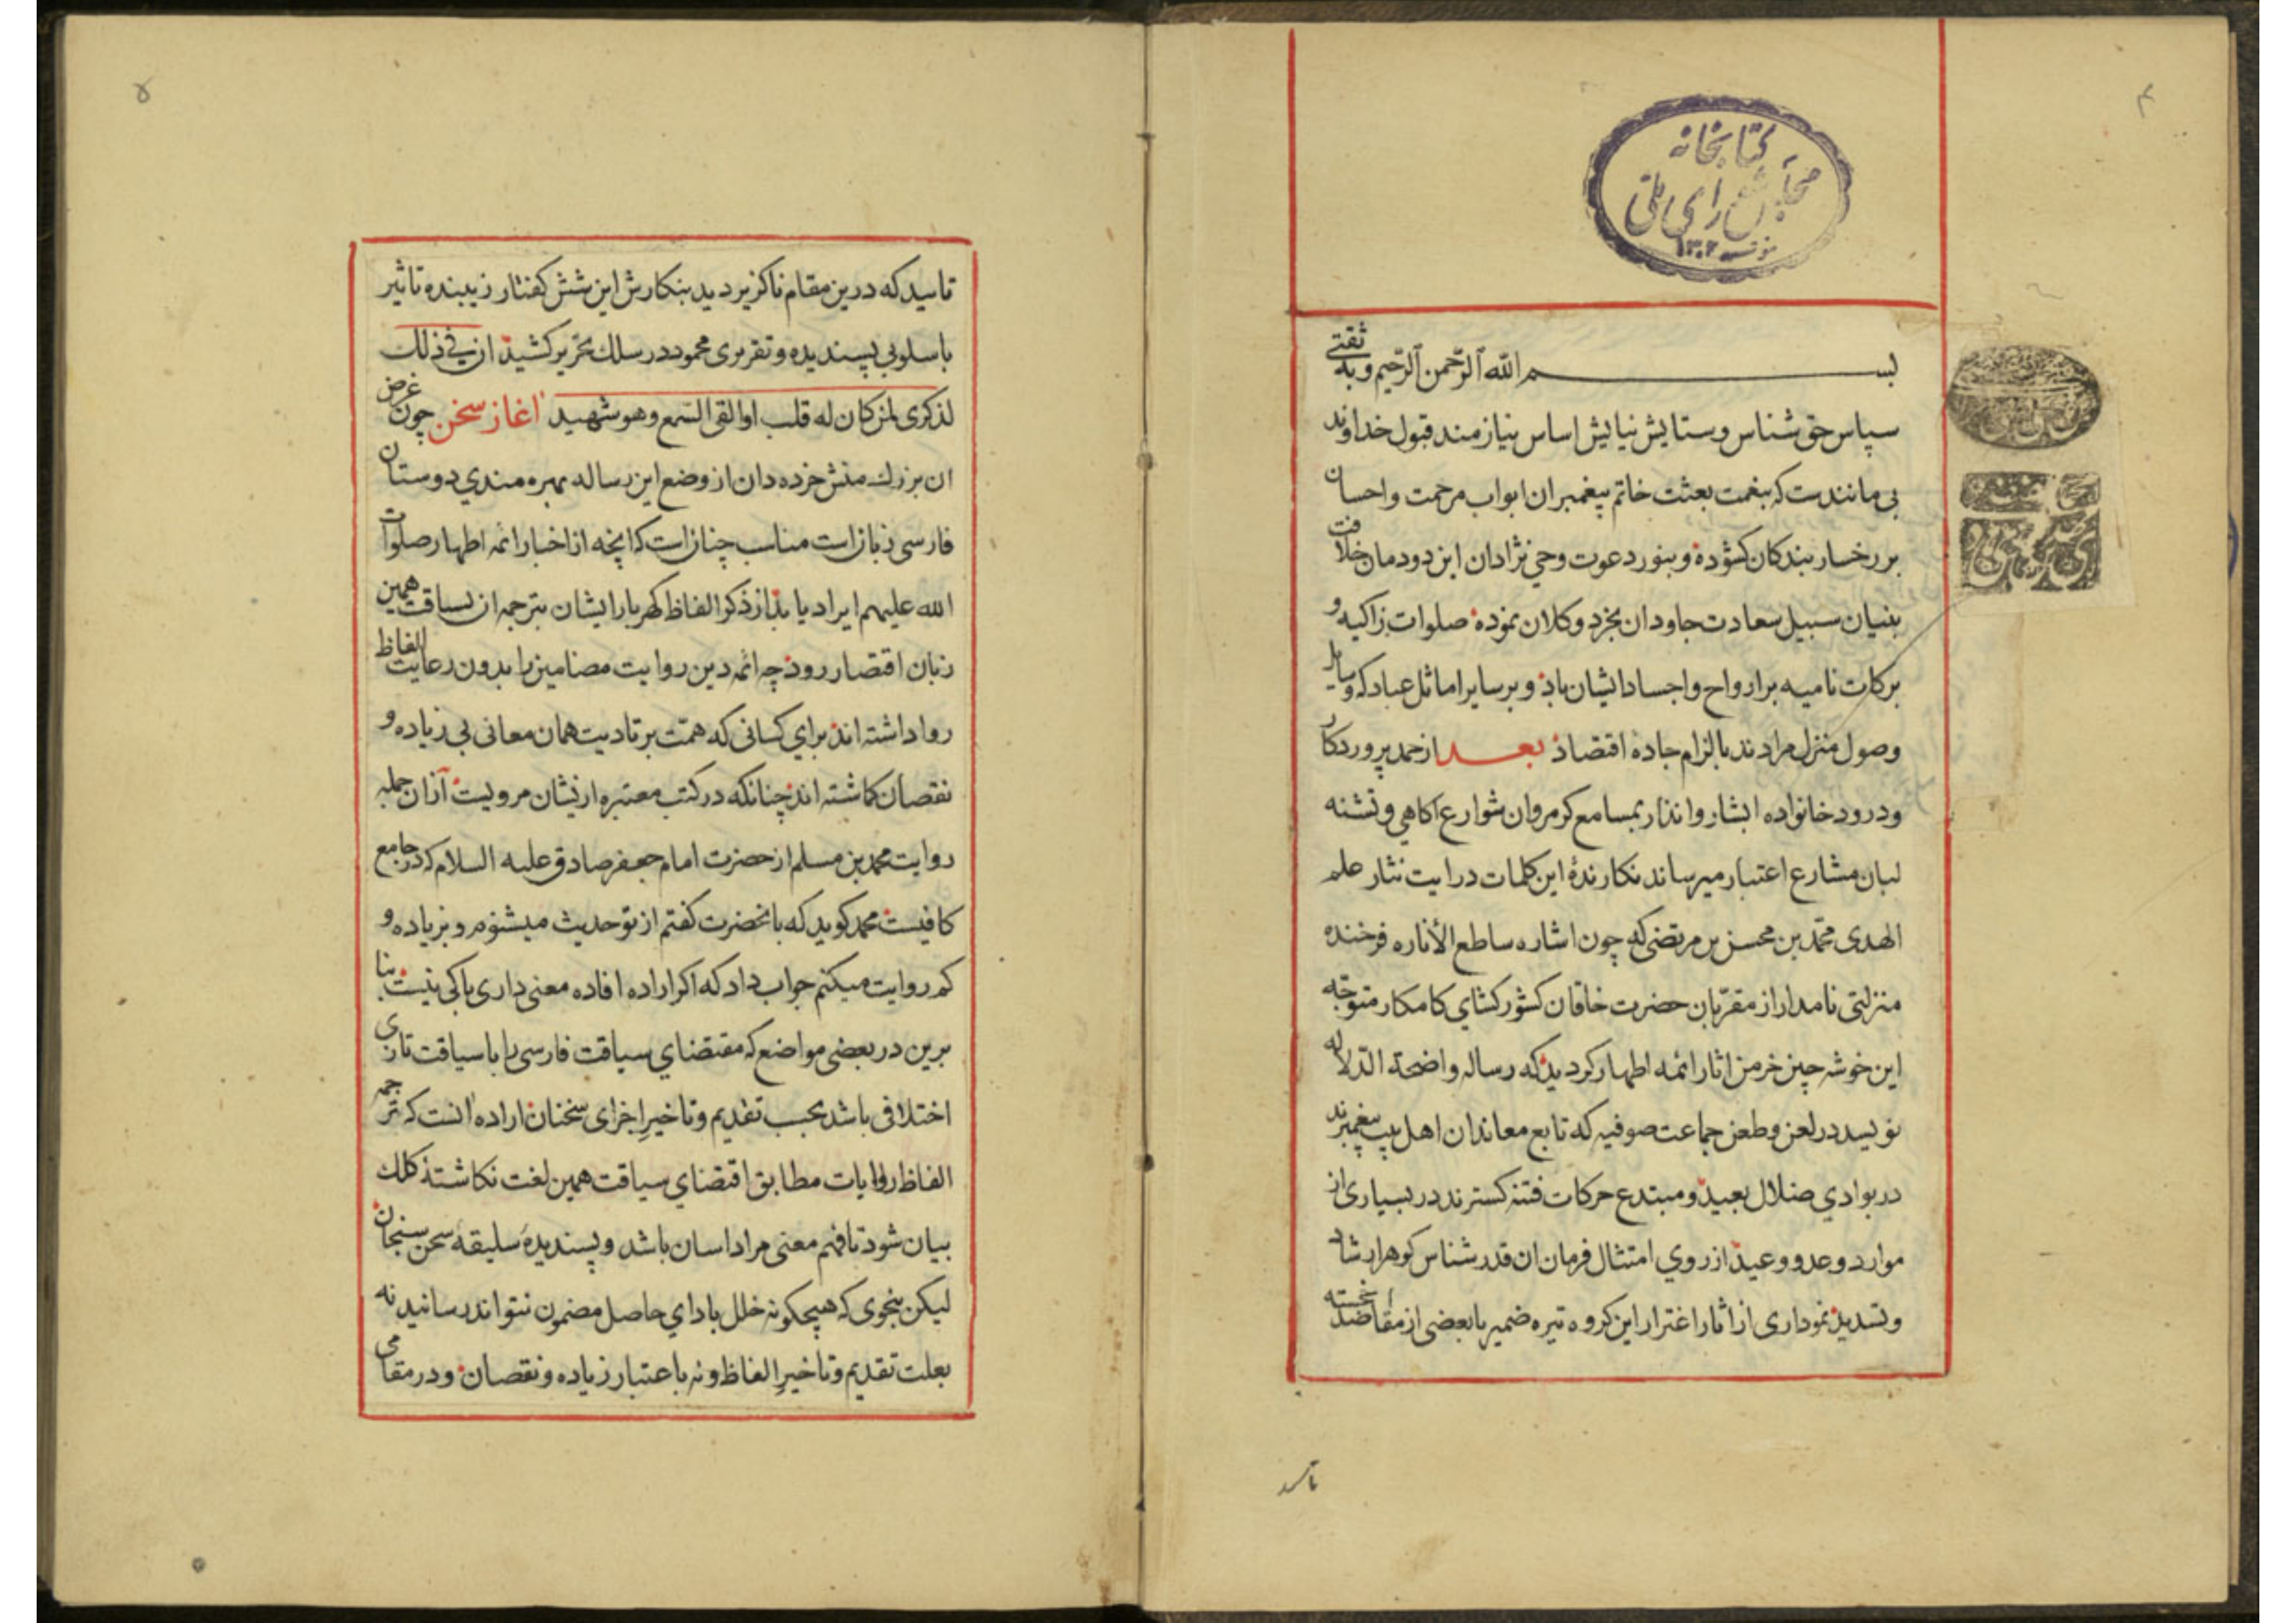 ۴
کتابخانه
مجلس شورای ملی
بسم الله الرحمن الرحیم وبه ثقتی
سپاس حق شناس و ستایش نیایش اساس نیازمند قبول خداوند
بی مانندست که بنعمت بعثت خاتم پیغمبران ابواب مرحمت واحسان
بر رخسار بندکان کشوده وبنور دعوت وحی نژادان این دودمان خلافت
بنیان سبیل سعادت جاودان بخرد وکلان نموده صلوات زاکیه و
برکات نامیه بر ارواح واجساد ایشان باد وبر سایر اماثل عباد که وسایل
وصول منزل مرادند بالزام جاده اقتصاد بعد از حمد پروردکار
ودرود خانواده ابشار وانذار بمسامع کرم روان شوارع اکاهی وتشنه
لبان مشارع اعتبار میرساند نکارندهٔ این کلمات درایت نثار علم
الهدی محمّد بن محسن بن مرتضی که چون اشاره ساطع الأناره فرخنده
منزلتی نامدار از مقرّبان حضرت خاقان کشور کشای کامکار متوجّه
این خوشه چین خرمن اثار ائمه اطهار کردید که رساله واضحة الدّلاله
نویسد در لعن وطعن جماعت صوفیه که تابع معاندان اهل بیت پیغمبرند
در بوادی ضلال بعید ومبتدع حرکات فتنه کسترند در بسیاری از
موارد وعد و وعید از روی امتثال فرمان ان قدرشناس کوهر ارشاد
وتسدید نموداری از اثار اغترار این کروه تیره ضمیر با بعضی از مقاصد
تاسید
۵
تاسید که درین مقام ناکزیر دید بنکارش این شش کفتار زیبنده تاثیر
باسلوبی پسندیده وتقریری محمود در سلک تحریر کشید ان فی ذلک
لذکری لمن کان له قلب او القی السّمع وهو شهید اغاز سخن چون غرض
ان بزرک منش خرده دان از وضع این رساله بهره مندی دوستان
فارسی زبان است مناسب چنان است که انچه از اخبار ائمه اطهار صلوات
الله علیهم ایراد یابد از ذکر الفاظ کهربار ایشان بترجمه ان بسیاقت همین
زبان اقتصار رود چه ائمه دین روایت مضامین را بدون رعایت الفاظ
روا داشته اند برای کسانی که همّت بر تادیت همان معانی بی زیاده و
نقصان کماشته اند چنانکه در کتب معتبره ازیشان مرویست از ان جمله
روایت محمد بن مسلم از حضرت امام جعفر صادق علیه السلام که در جامع
کافیست محمد کوید که بانحضرت کفتم از تو حدیث میشنوم و بزیاده و
کم روایت میکنم جواب داد که اکر اراده افاده معنی داری باکی نیست بنا
برین در بعضی مواضع که مقتضای سیاقت فارسی را با سیاقت تازی
اختلافی باشد بحسب تقدیم وتاخیر اجزای سخنان اراده انست که ترجمه
الفاظ روایات مطابق اقتضای سیاقت همین لغت نکاشته کلک
بیان شود تا فهم معنی مراد اسان باشد و پسندیدهٔ سلیقهٔ سخن سنجان
لیکن بنحوی که هیچکونه خلل بادای حاصل مضمون نتواند رسانید نه
بعلت تقدیم وتاخیر الفاظ ونه باعتبار زیاده ونقصان ودر مقامی